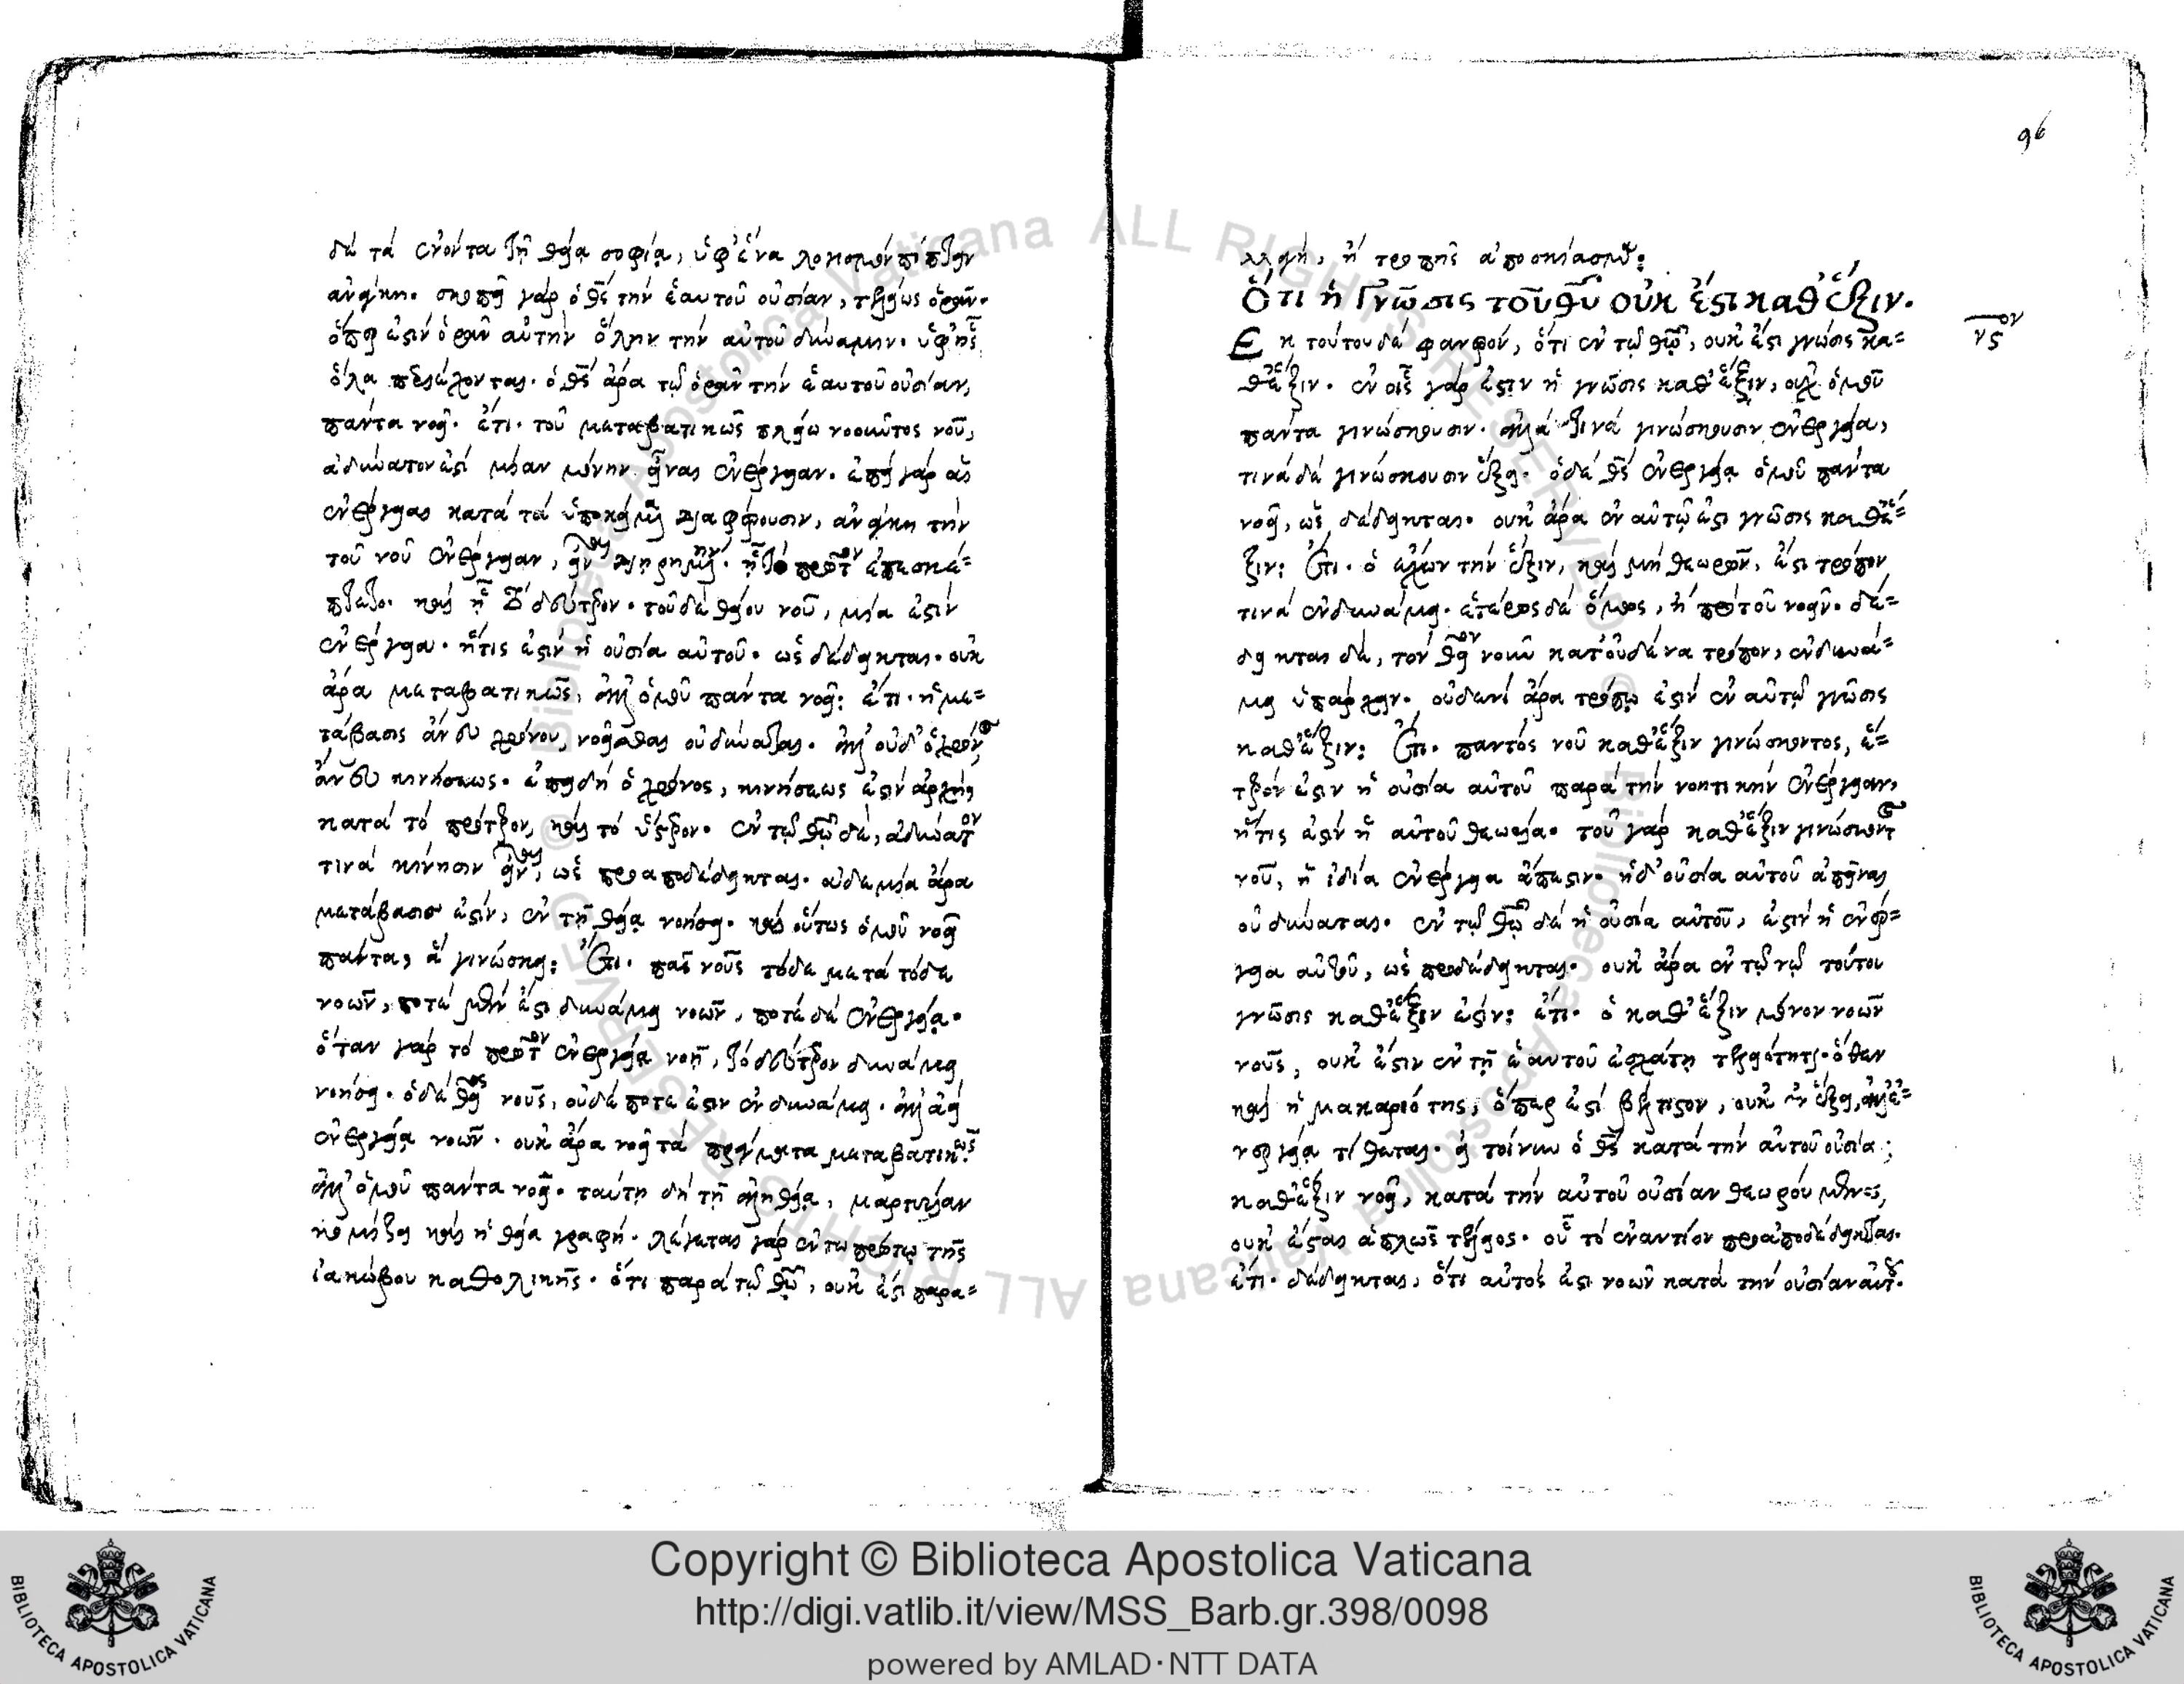 δὲ τὰ ἐνόντα τῇ θείᾳ σοφίᾳ, ὑφ' ἕνα λογισμὸν πίπτειν
ἀνάγκη. σκοπεῖ γὰρ ὁ θς τὴν ἑαυτοῦ οὐσίαν, τελείως ὁρῶν.
ὅπερ ἐστὶν ὁρᾶν αὐτὴν ὅλην τὴν αὐτοῦ δύναμιν. ὑφ' ἧς
ὅλα περιέχονται. ὁ θς ἄρα τῷ ὁρᾶν τὴν ἑαυτοῦ οὐσίαν,
πάντα νοεῖ. ἔτι. τοῦ μεταβατικῶς πλείω νοοῦντος νοῦ,
ἀδύνατόν ἐστι μίαν μόνην εἶναι ἐνέργειαν. ἐπεὶ γὰρ αἱ
ἐνέργειαι κατὰ τὰ ὑποκείμενα διαφέρουσιν, ἀνάγκη τὴν
τοῦ νοῦ ἐνέργειαν, εἶναι διῃρημένην. ᾗ τὸ πρῶτον ἐπεσκέ=
πτετο. καὶ ᾗ τὸ δεύτερον. τοῦ δὲ θείου νοῦ, μία ἐστὶν
ἐνέργεια. ἥτις ἐστὶν ἡ οὐσία αὐτοῦ. ὡς δέδεικται. οὐκ
ἄρα μεταβατικῶς, ἀλλ' ὁμοῦ πάντα νοεῖ: ἔτι. ἡ με=
τάβασις ἄνευ χρόνου, νοεῖσθαι οὐ δύναται. ἀλλ' οὐδ' ὁ χρόνος,
ἄνευ κινήσεως. ἐπειδὴ ὁ χρόνος, κινήσεώς ἐστιν ἀρχὴ,
κατὰ τὸ πρότερον, καὶ τὸ ὕστερον. ἐν τῷ θῷ δὲ, ἀδύνατον
τινὰ κίνησιν εἶναι, ὡς προαποδέδεικται. οὐδεμία ἄρα
μετάβασίς ἐστιν, ἐν τῇ θείᾳ νοήσει. καὶ οὕτως ὁμοῦ νοεῖ
πάντα, ἃ γινώσκει: Ἔτι. πᾶς νοῦς τόδε μετὰ τόδε
νοῶν, ποτὲ μέν ἐστι δυνάμει νοῶν, ποτὲ δὲ ἐνεργείᾳ.
ὅταν γὰρ τὸ πρῶτον ἐνεργείᾳ νοῇ, τὸ δεύτερον δυνάμει
νοήσει. ὁ δὲ θεῖος νοῦς, οὐδέποτέ ἐστιν ἐν δυνάμει. ἀλλ' ἀεὶ
ἐνεργείᾳ νοῶν. οὐκ ἄρα νοεῖ τὰ πράγματα μεταβατικῶς.
ἀλλ' ὁμοῦ πάντα νοεῖ. ταύτῃ δὴ τῇ ἀληθείᾳ, μαρτυρίαν
κομίζει καὶ ἡ θεία γραφή. λέγεται γὰρ ἐν τῷ πρώτῳ τῆς
ἰακώβου καθολικῆς. ὅτι παρὰ τῷ θῷ, οὐκ ἔστι παρα=
96
λλαγὴ, ἢ τροπῆς ἀποσκίασμα:
Ὅτι ἡ Γνῶσις τοῦ θυ οὐκ ἔστι καθ' ἕξιν.
νϛον
Ἐκ τούτου δὲ φανερὸν, ὅτι ἐν τῷ θῷ, οὐκ ἔστι γνῶσις κα=
θ' ἕξιν. ἐν οἷς γάρ ἐστιν ἡ γνῶσις καθ' ἕξιν, οὐχ ὁμοῦ
πάντα γινώσκουσιν. ἀλλὰ τινὰ γινώσκουσιν ἐνεργείᾳ,
τινὰ δὲ γινώσκουσιν ἕξει. ὁ δὲ θς ἐνεργείᾳ ὁμοῦ πάντα
νοεῖ, ὡς δέδεικται. οὐκ ἄρα ἐν αὐτῷ ἐστι γνῶσις καθ' ἕ=
ξιν: Ἔτι. ὁ ἔχων τὴν ἕξιν, καὶ μὴ θεωρῶν, ἔστι τρόπον
τινὰ ἐν δυνάμει. ἑτέρως δὲ ὅμως, ἢ πρὸ τοῦ νοεῖν. δέ=
δεικται δὲ, τὸν θεῖον νοῦν κατ' οὐδένα τρόπον, ἐν δυνά=
μει ὑπάρχειν. οὐδενὶ ἄρα τρόπῳ ἐστὶν ἐν αὐτῷ γνῶσις
καθ' ἕξιν: Ἔτι. παντὸς νοῦ καθ' ἕξιν γινώσκοντος, ἕ=
τερόν ἐστιν ἡ οὐσία αὐτοῦ παρὰ τὴν νοητικὴν ἐνέργειαν,
ἥτις ἐστὶν ἡ αὐτοῦ θεωρία. τοῦ γὰρ καθ' ἕξιν γινώσκοντος
νοῦ, ἡ ἰδία ἐνέργεια ἄπεστιν. ἡ δ' οὐσία αὐτοῦ ἀπεῖναι
οὐ δύναται. ἐν τῷ θῷ δὲ ἡ οὐσία αὐτοῦ, ἐστὶν ἡ ἐνέρ=
γεια αὐτοῦ, ὡς προδέδεικται. οὐκ ἄρα ἐν τῷ νῷ τούτου
γνῶσις καθ' ἕξιν ἐστίν: ἔτι. ὁ καθ' ἕξιν μόνον νοῶν
νοῦς, οὐκ ἔστιν ἐν τῇ ἑαυτοῦ ἐσχάτῃ τελειότητι. ὅθεν
καὶ ἡ μακαριότης, ὅπερ ἐστὶ βέλτιστον, οὐκ ἐν ἕξει, ἀλλ' ἐ=
νεργείᾳ τίθεται. εἰ τοίνυν ὁ θς κατὰ τὴν αὐτοῦ οὐσία;
καθ' ἕξιν νοεῖ, κατὰ τὴν αὐτοῦ οὐσίαν θεωρούμενος,
οὐκ ἔσται ἁπλῶς τέλειος. οὗ τὸ ἐναντίον προαποδέδεικται.
ἔτι. δέδεικται, ὅτι αὐτός ἐστι νοῶν κατὰ τὴν οὐσίαν αὐτοῦ.
Copyright © Biblioteca Apostolica Vaticana
http://digi.vatlib.it/view/MSS_Barb.gr.398/0098
powered by AMLAD·NTT DATA
BIBLIOTECA APOSTOLICA VATICANA
BIBLIOTECA APOSTOLICA VATICANA